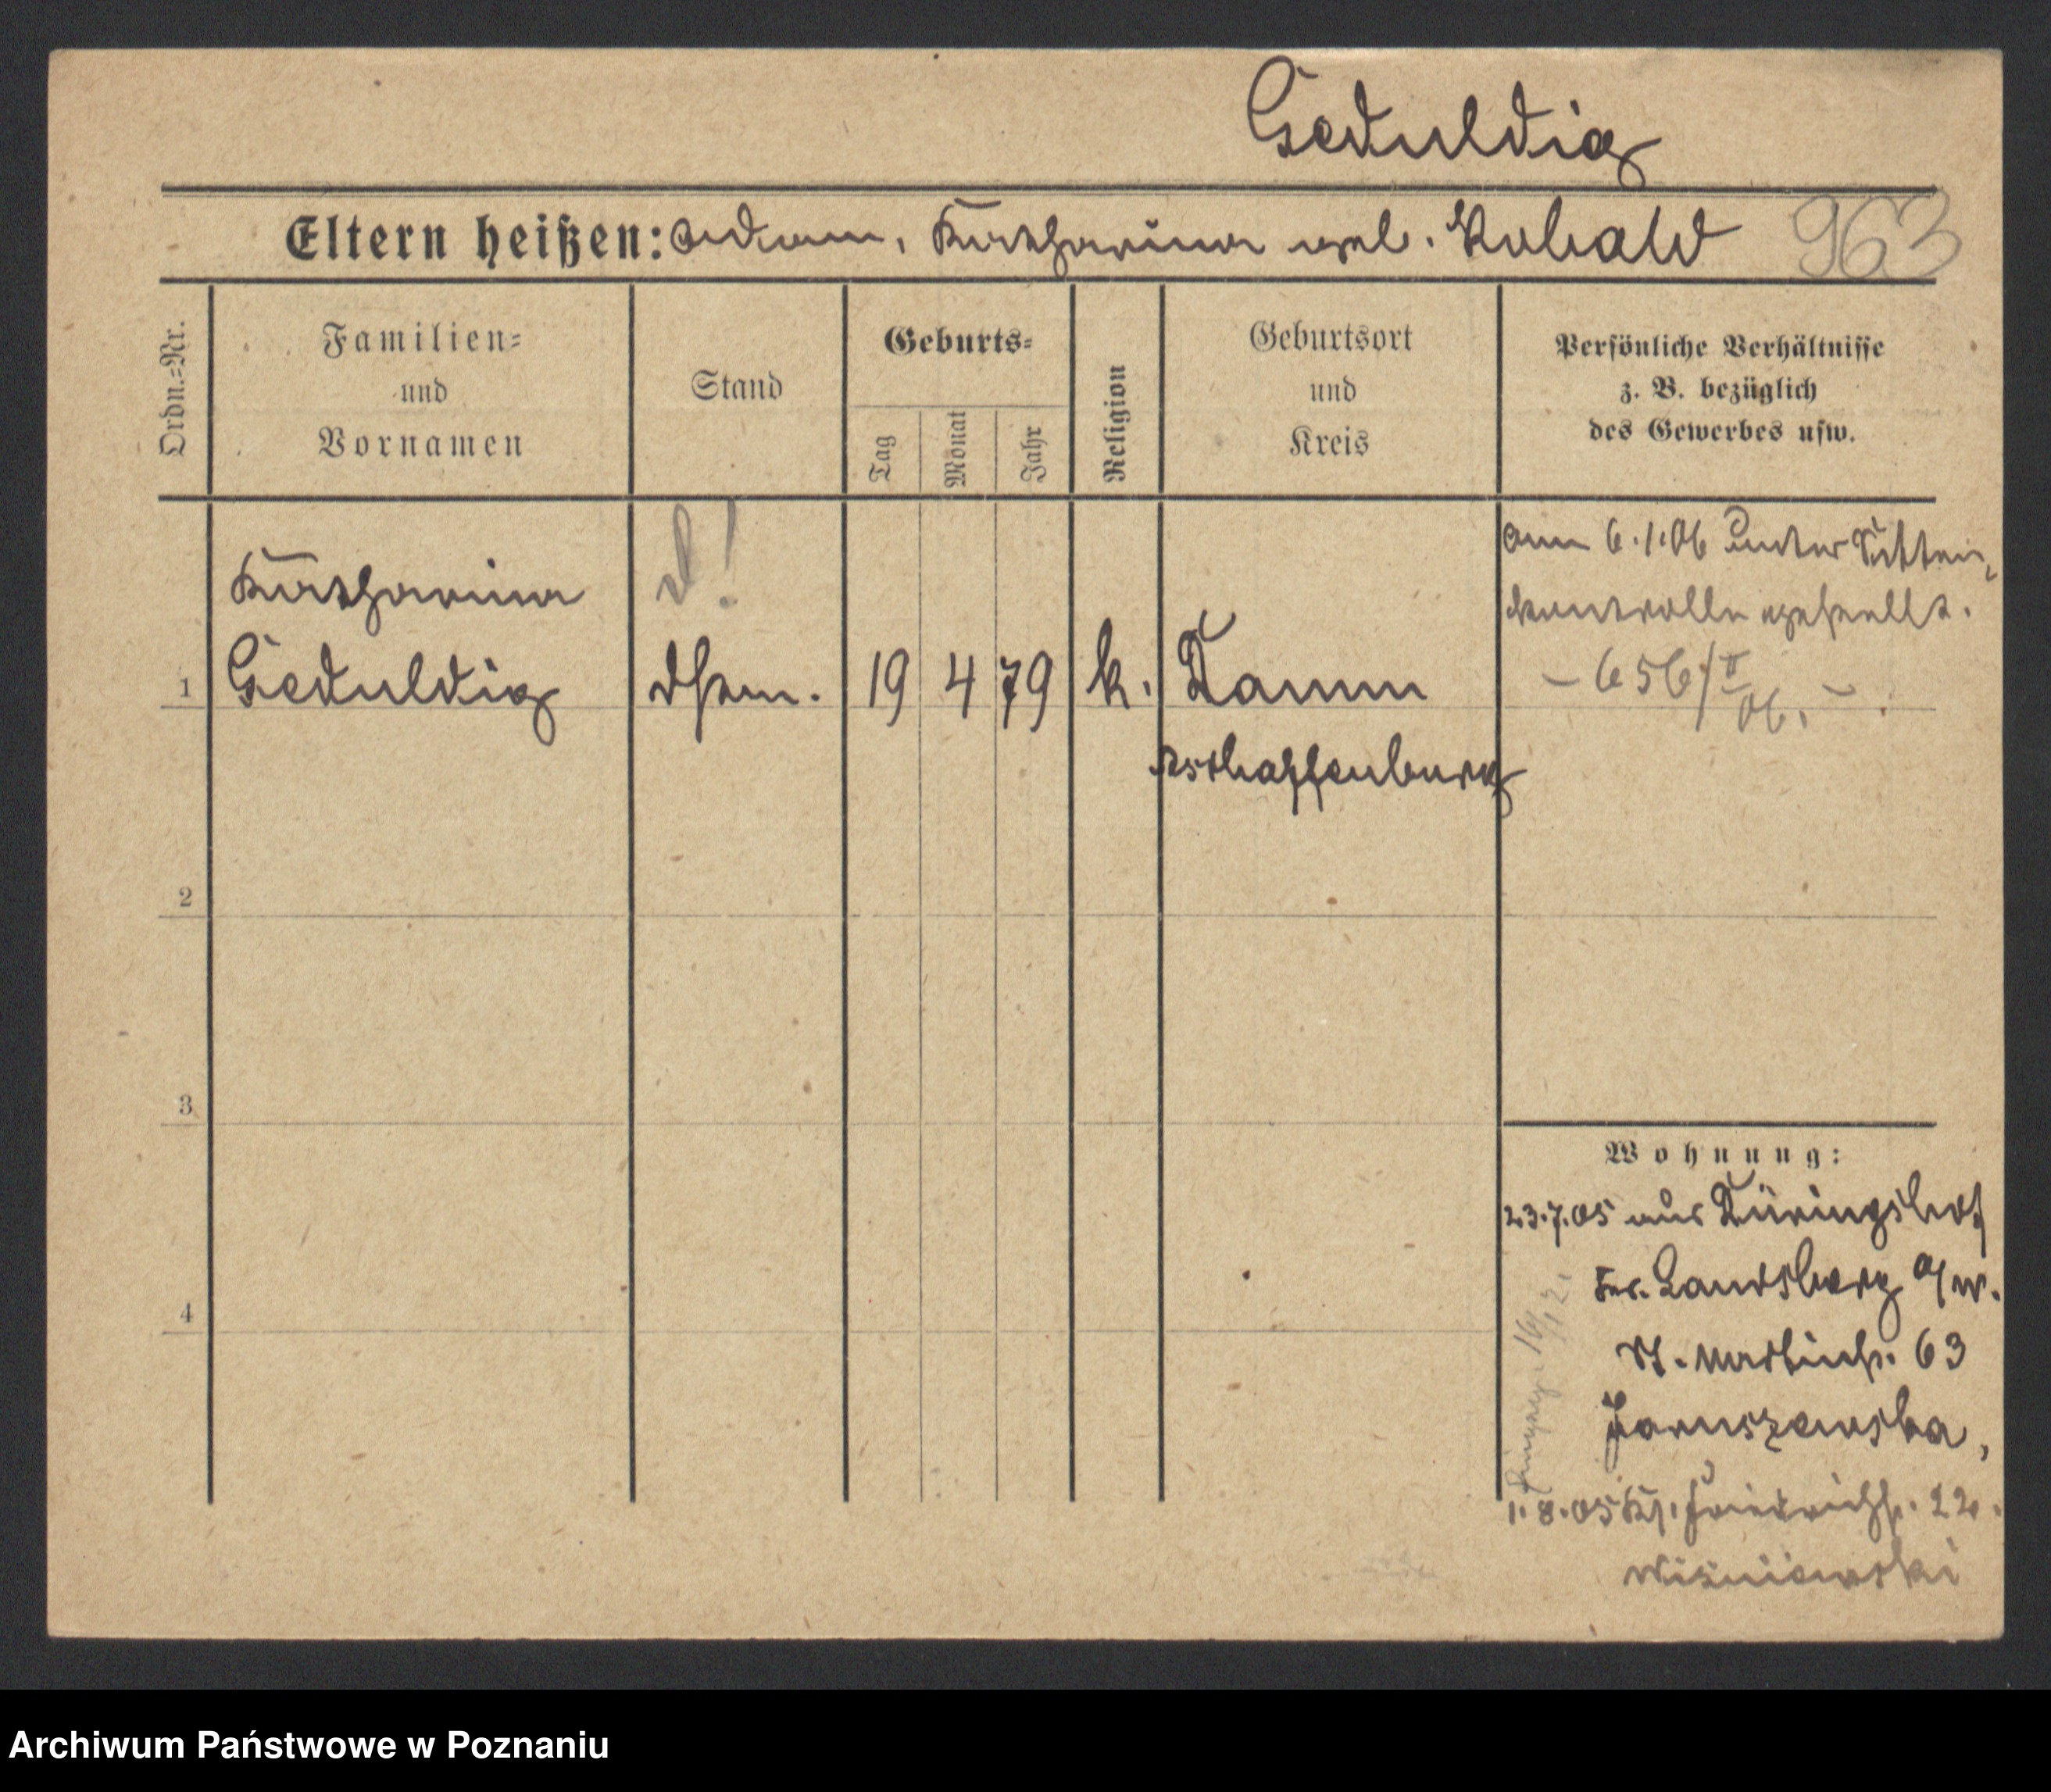 Geduldig
Eltern heißen: Adam, Katharina geb. Kobald 963
Ordn.=Nr.
Familien=
und
Vornamen
Stand
Geburts=
Tag
Monat
Jahr
Religion
Geburtsort
und
Kreis
Persönliche Verhältnisse
z. B. bezüglich
des Gewerbes usw.
Katharina
1 Geduldig
19 4 79 k. Damm
Aschaffenburg
am 6.1.06 unter Sitten-
kontrolle gestellt.
- 656/II 06. -
2
3
4
Wohnung:
23.7.05 aus Düringshof
Kr. Landsberg a/W.
St. Martinstr. 63
Januszewska,
1.8.05 Kl. Friedrichstr. 22.
Wisniewski
16/12.
Archiwum Państwowe w Poznaniu